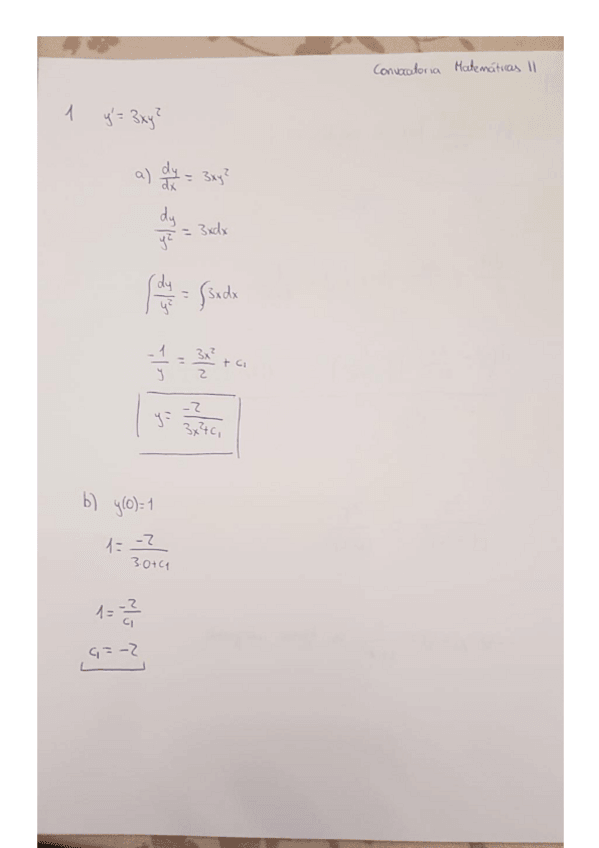 Convocatoria Matemáticas II
1 y' = 3xy²
a) dy/dx = 3xy²
dy/y² = 3xdx
∫ dy/y² = ∫ 3xdx
-1/y = 3x²/2 + c₁
y = -2/(3x²+c₁)
b) y(0)=1
1 = -2/(3·0+c₁)
1 = -2/c₁
c₁ = -2